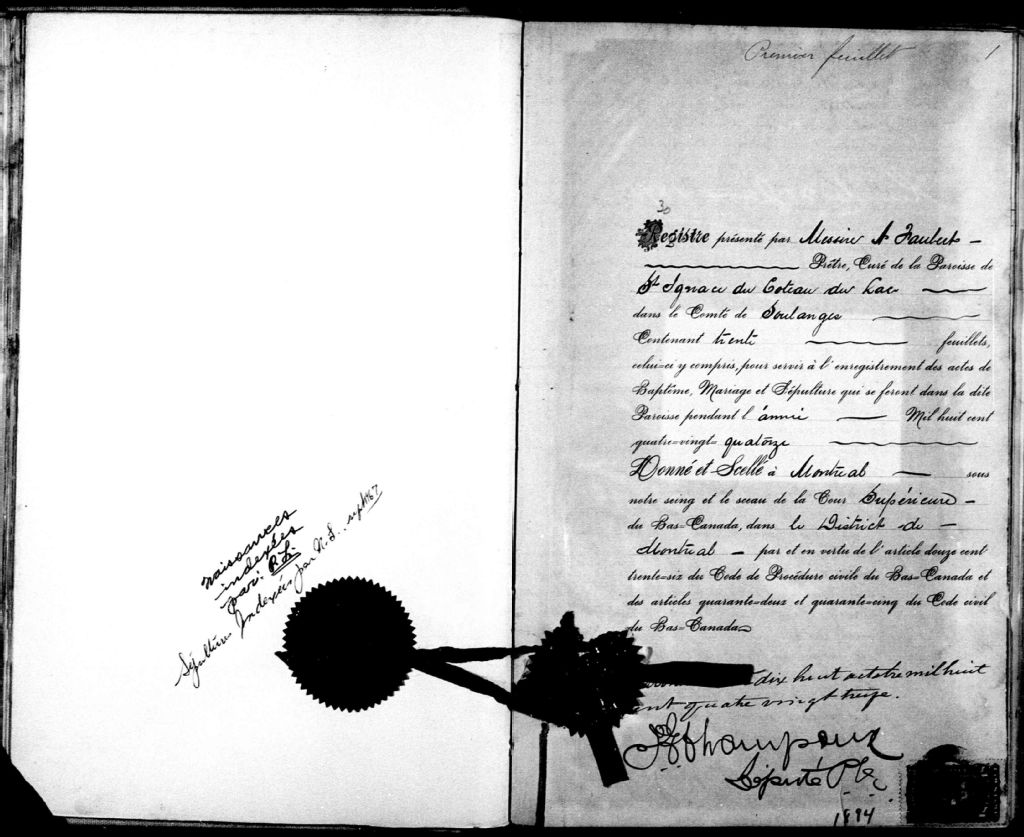 naissances
indexées
par: R.L.
Sépultures Indexées par N.S.. sept 1967
Premier feuillet 1
30
Registre présenté par Messire A Faubert
Prêtre, Curé de la Paroisse de
St Ignace du Coteau du Lac
dans le Comté de Soulanges
Contenant trente feuillets,
celui=ci y compris, pour servir à l'enregistrement des actes de
Baptême, Mariage et Sépulture qui se feront dans la dite
Paroisse pendant l'année Mil huit cent
quatre=vingt= quatorze
Donné et Scellé à Montréal sous
notre seing et le sceau de la Cour Supérieure
du Bas=Canada, dans le District de
Montréal par et en vertu de l'article douze cent
trente=six du Code de Procédure civile du Bas=Canada et
des articles quarante=deux et quarante=cinq du Code civil
du Bas=Canada
dix huit octobre mil huit
cent quatre vingt treize.
Député P.
1894